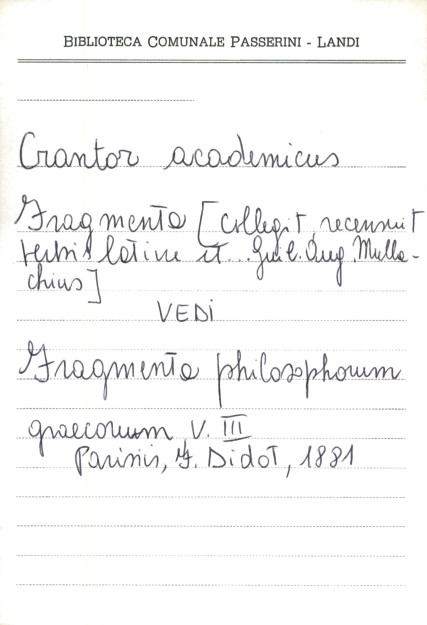 BIBLIOTECA COMUNALE PASSERINI - LANDI
Crantor academicus
Fragmenta [collegit, recensuit
verbis latine et... Guil. Aug. Mulla-
chius]
VEDI
Fragmenta philosophorum
graecorum V. III
Parisiis, F. Didot, 1881